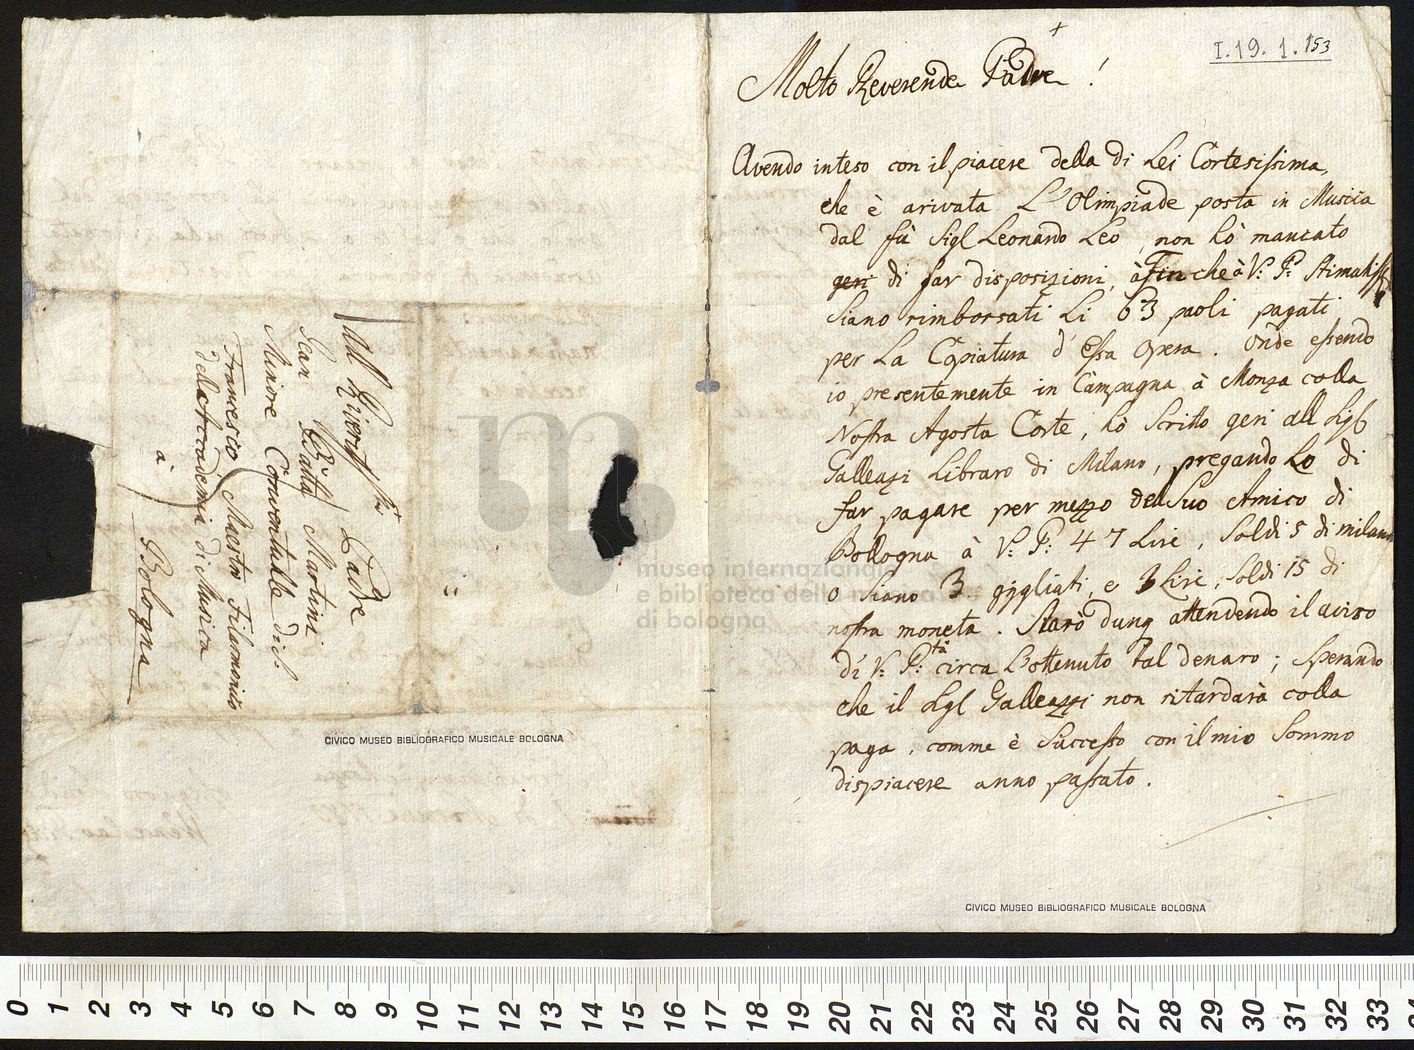 I.19.1.153
+
Molto Reverende Padre!
Avendo inteso con il piacere della di Lei Cortesissima,
che è arivata L'Olimpiade posta in Musica
dal fù Sigl Leonardo Leo, non hò mancato
geri di far disposizioni, à Fin che à V: P: Stimatiss
siano rimborsati Li 63 paoli pagati
per La Copiatura d'Essa Opera. Onde essendo
io presentemente in Campagna à Monza colla
Nostra Agosta Corte, hò Scritto geri all Sigl
Galleazi Libraro di Milano, pregando Lo di
far pagare per mezzo del Suo Amico di
Bollogna à V: P: 47 Lire, Soldi 5 di milano
o siano 3 gigliati, e 3 Lire, Soldi 15 di
nostra moneta. Starò dunq attendendo il aviso
di V: P:tà circa L'ottenuto tal denaro; Sperando
che il Sgl Galleazzi non ritardarà colla
paga, comme è Successo con il mio Sommo
dispiacere anno passato.
CIVICO MUSEO BIBLIOGRAFICO MUSICALE BOLOGNA
All Rierd Padre
Gean Batta Martini
Minore Conventualle di S.
Francesco, Maestro Filarmonico
della Accademia di Musica
à
Bologna
CIVICO MUSEO BIBLIOGRAFICO MUSICALE BOLOGNA
museo internazionale
e biblioteca della musica
di bologna
0 1 2 3 4 5 6 7 8 9 10 11 12 13 14 15 16 17 18 19 20 21 22 23 24 25 26 27 28 29 30 31 32 33 34